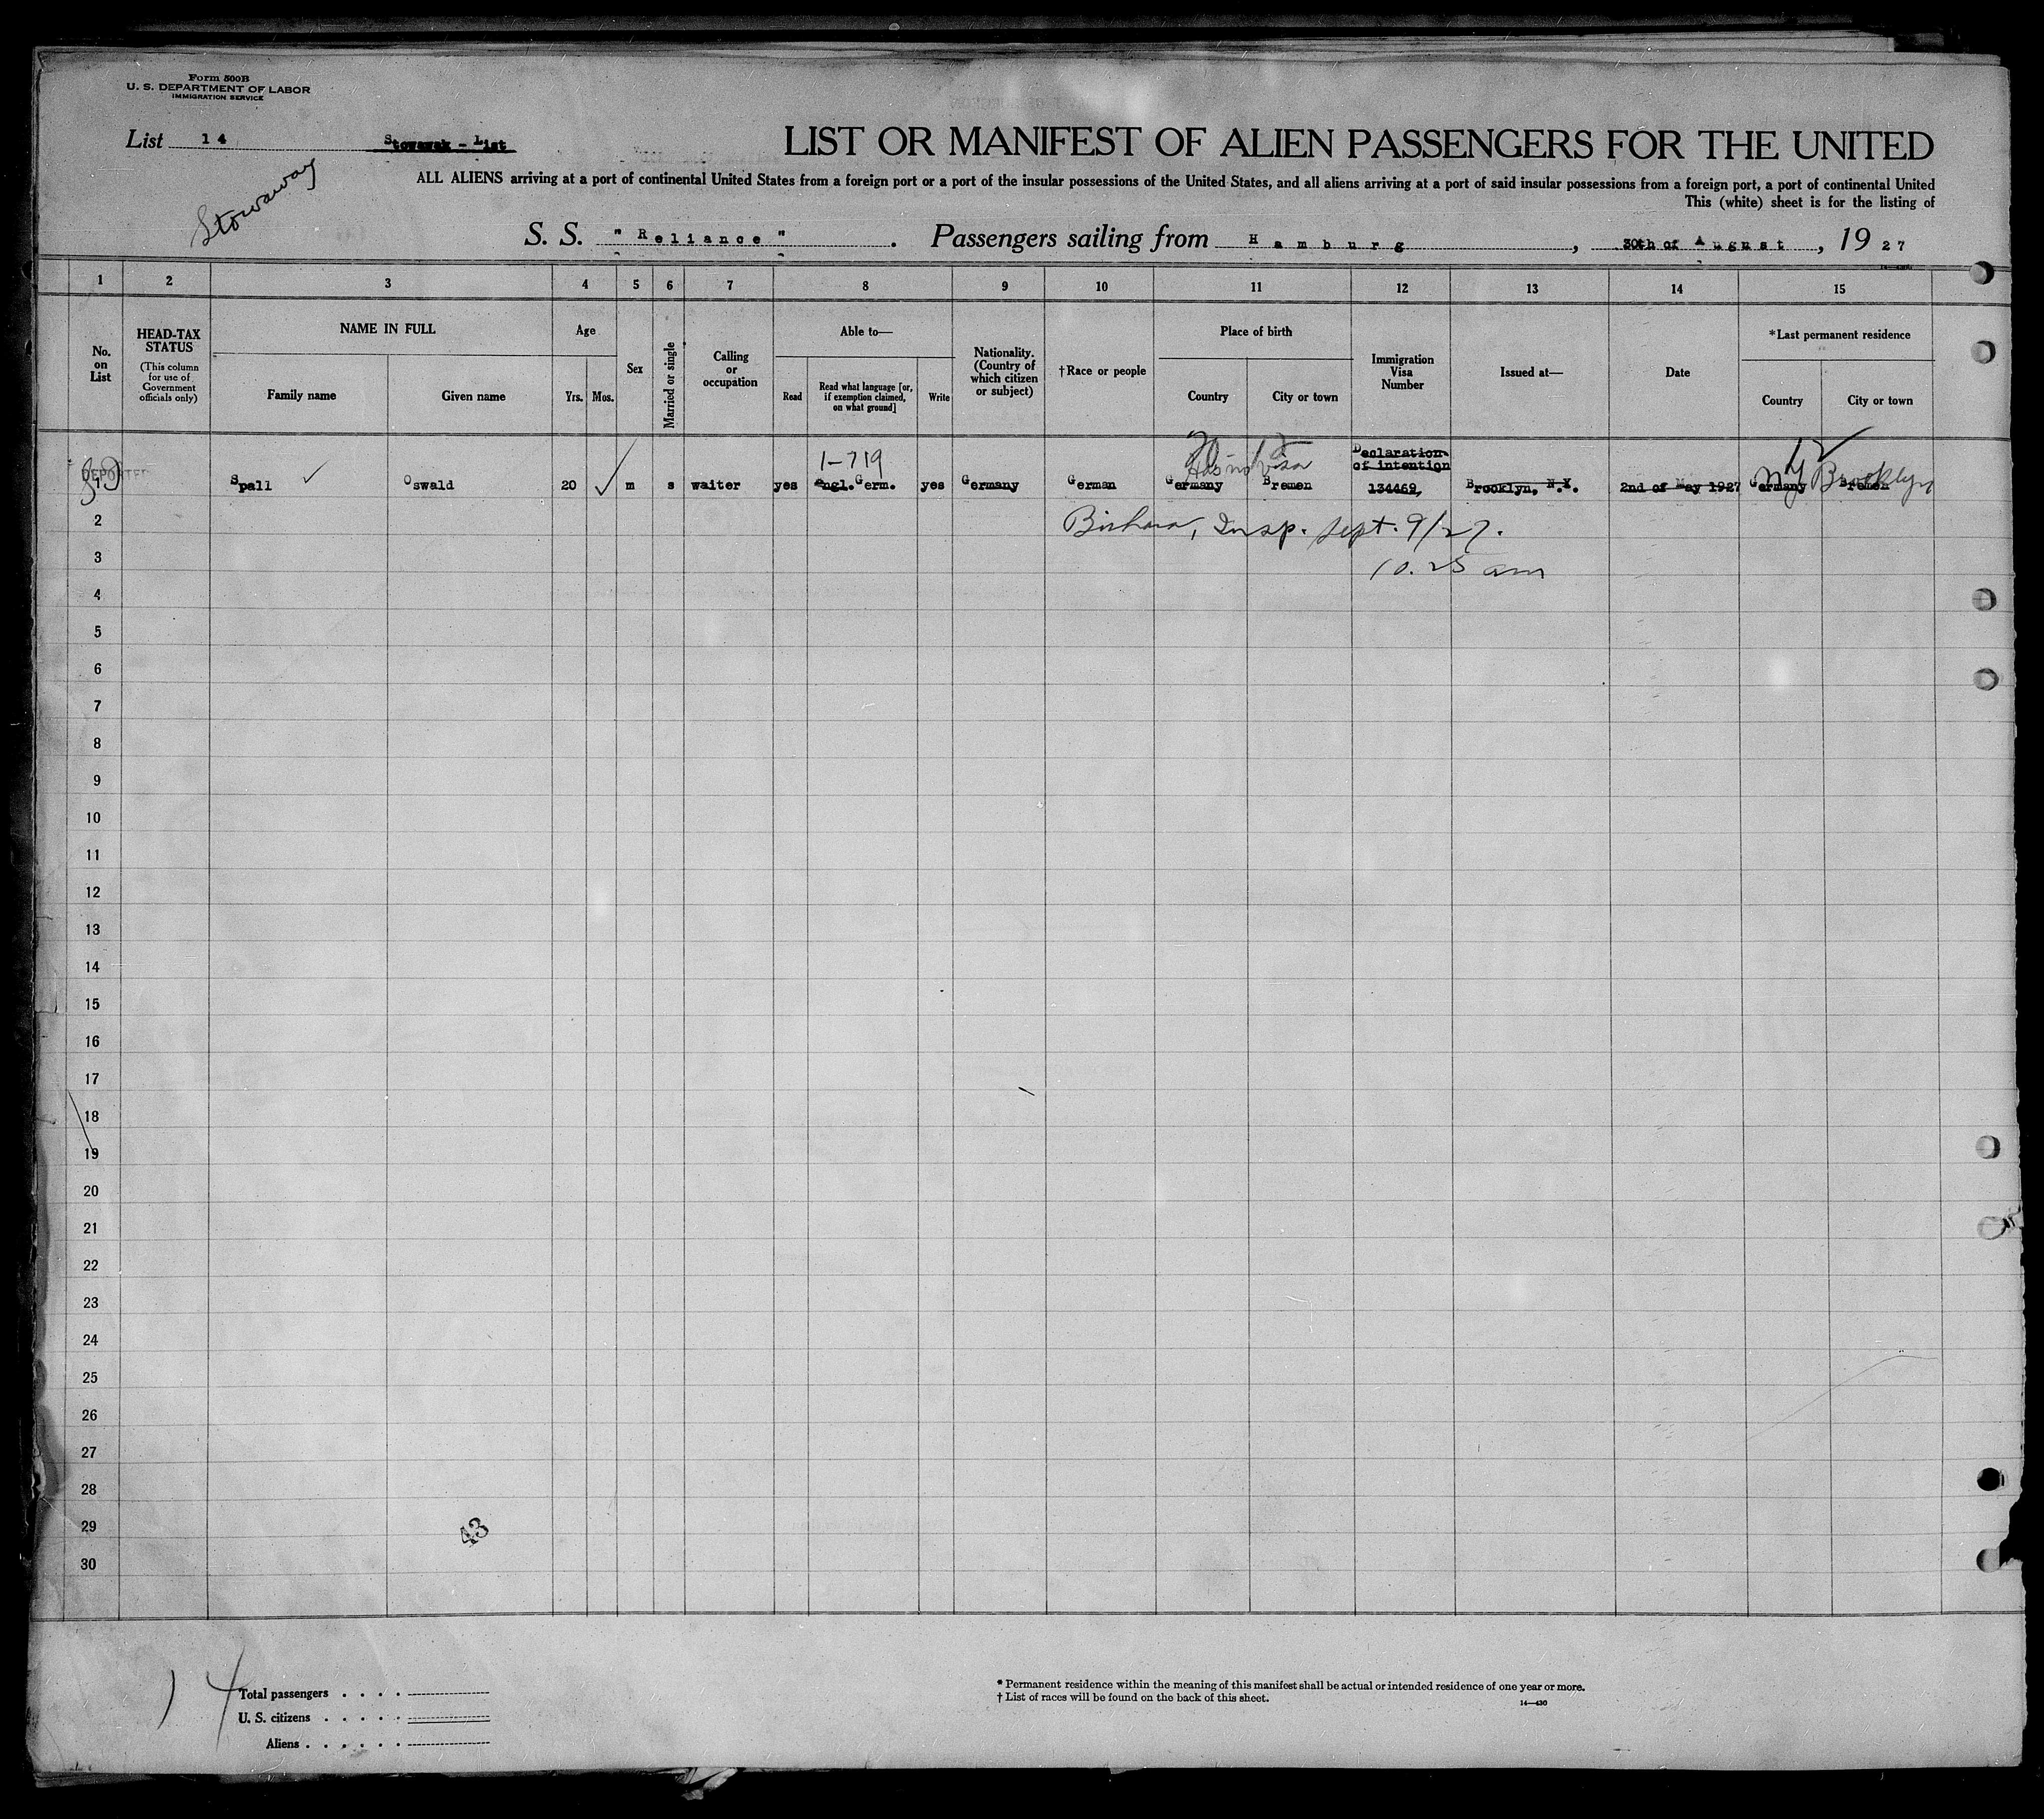 Form 500B
U. S. DEPARTMENT OF LABOR
IMMIGRATION SERVICE
List 14 Stowawak - List
Stowaway
LIST OR MANIFEST OF ALIEN PASSENGERS FOR THE UNITED
ALL ALIENS arriving at a port of continental United States from a foreign port or a port of the insular possessions of the United States, and all aliens arriving at a port of said insular possessions from a foreign port, a port of continental United
This (white) sheet is for the listing of
S. S. "Reliance". Passengers sailing from Hamburg, 30th of August, 1927
1 2 3 4 5 6 7 8 9 10 11 12 13 14 15
No. on List
HEAD-TAX STATUS
(This column for use of Government officials only)
NAME IN FULL
Family name Given name
Age
Yrs. Mos.
Sex
Married or single
Calling or occupation
Able to—
Read
Read what language [or, if exemption claimed, on what ground]
Write
Nationality. (Country of which citizen or subject)
†Race or people
Place of birth
Country City or town
Immigration Visa Number
Issued at—
Date
*Last permanent residence
Country City or town
DEPORTED
1-719
Has no visa
Declaration
of intention
12
1 Spall Oswald 20 m s waiter yes Engl. Germ. yes Germany German Germany Bremen 134469, Brooklyn, N.Y. 2nd of May 1927 Germany Bremen
NY Brooklyn
2
Insp. Sept. 9/27.
3
10.25 am
4
5
6
7
8
9
10
11
12
13
14
15
16
17
18
19
20
21
22
23
24
25
26
27
28
29
30
43
14
Total passengers
U. S. citizens
Aliens
* Permanent residence within the meaning of this manifest shall be actual or intended residence of one year or more.
† List of races will be found on the back of this sheet.
14—430